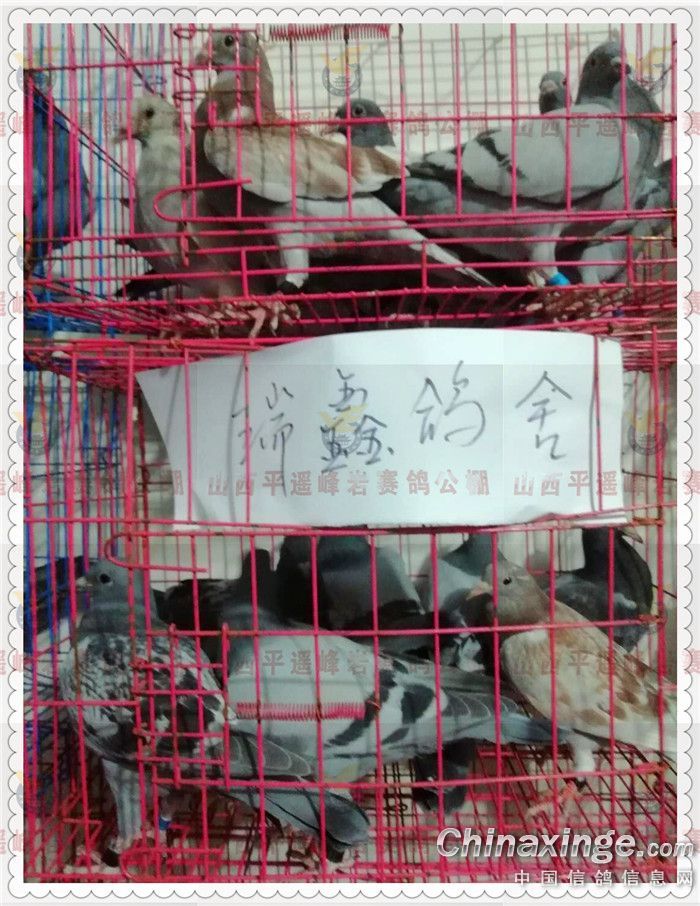 山西平遥峰岩赛鸽公棚 山西平遥峰岩赛鸽公棚
瑞鑫鸽舍
山西平遥峰岩赛鸽公棚 山西平遥峰岩赛鸽公棚
Chinaxinge.com
中国信鸽信息网